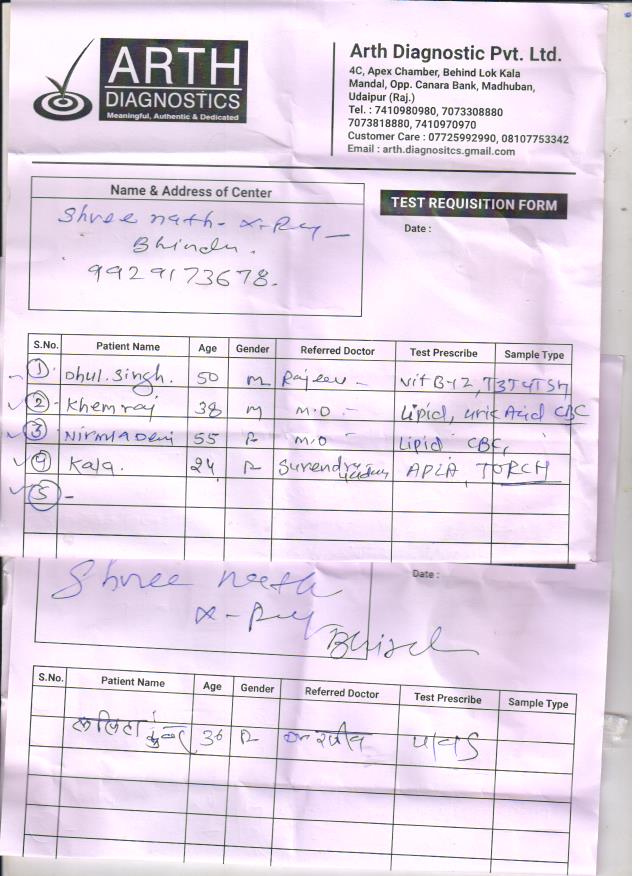 ARTH
DIAGNOSTICS
Meaningful, Authentic & Dedicated
Arth Diagnostic Pvt. Ltd.
4C, Apex Chamber, Behind Lok Kala
Mandal, Opp. Canara Bank, Madhuban,
Udaipur (Raj.)
Tel. : 7410980980, 7073308880
7073818880, 7410970970
Customer Care : 07725992990, 08107753342
Email : arth.diagnositcs.gmail.com
Name & Address of Center
TEST REQUISITION FORM
Date :
Shree nath - x-Ray -
Bhindu.
9929173678.
S.No. Patient Name Age Gender Referred Doctor Test Prescribe Sample Type
1 Dhul. Singh. 50 m Rajeev - vit B-12, T3T4TSH
2 Khemraj 38 m m.o - Lipid, uric Acid CBC
3 Nirmla Devi 55 F m.o Lipid CBC,
4 Kala. 24 F Surendra APLA, TORCH
5 -
Shree nath
Date :
x-Ray
S.No. Patient Name Age Gender Referred Doctor Test Prescribe Sample Type
36 F